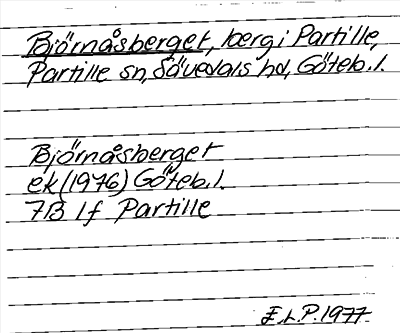 Björnåsberget, berg i Partille,
Partille sn, Sävedals hd, Göteb. l.
Björnåsberget
ek (1976) Göteb. l.
7B 1f Partille
E.L.P. 1977